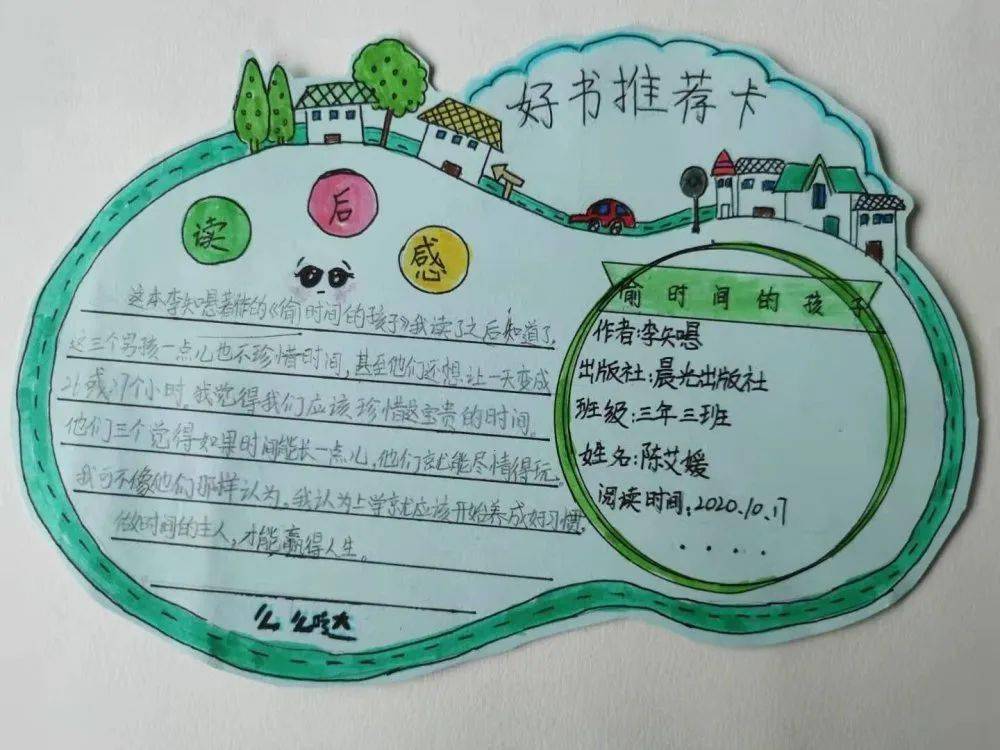 好书推荐卡
读后感
这本李矢嗯著作的《偷时间的孩子》我读了之后知道了,
这三个男孩一点儿也不珍惜时间,甚至他们还想让一天变成
26或27个小时。我觉得我们应该珍惜这宝贵的时间。
他们三个觉得如果时间能长一点儿,他们就能尽情得玩。
我可不像他们那样认为。我认为上学就应该开始养成好习惯,
做好时间的主人,才能赢得人生。
么么哒
偷时间的孩子
作者:李矢嗯
出版社:晨光出版社
班级:三年三班
姓名:陈艾媛
阅读时间:2020.10.17
....